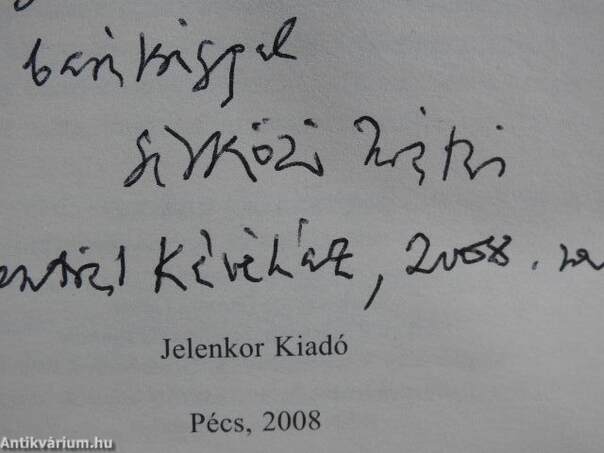 barátsággal
Sárközi Mátyás
entrál Kávéház, 2008.
Jelenkor Kiadó
Pécs, 2008
Antikvárium.hu